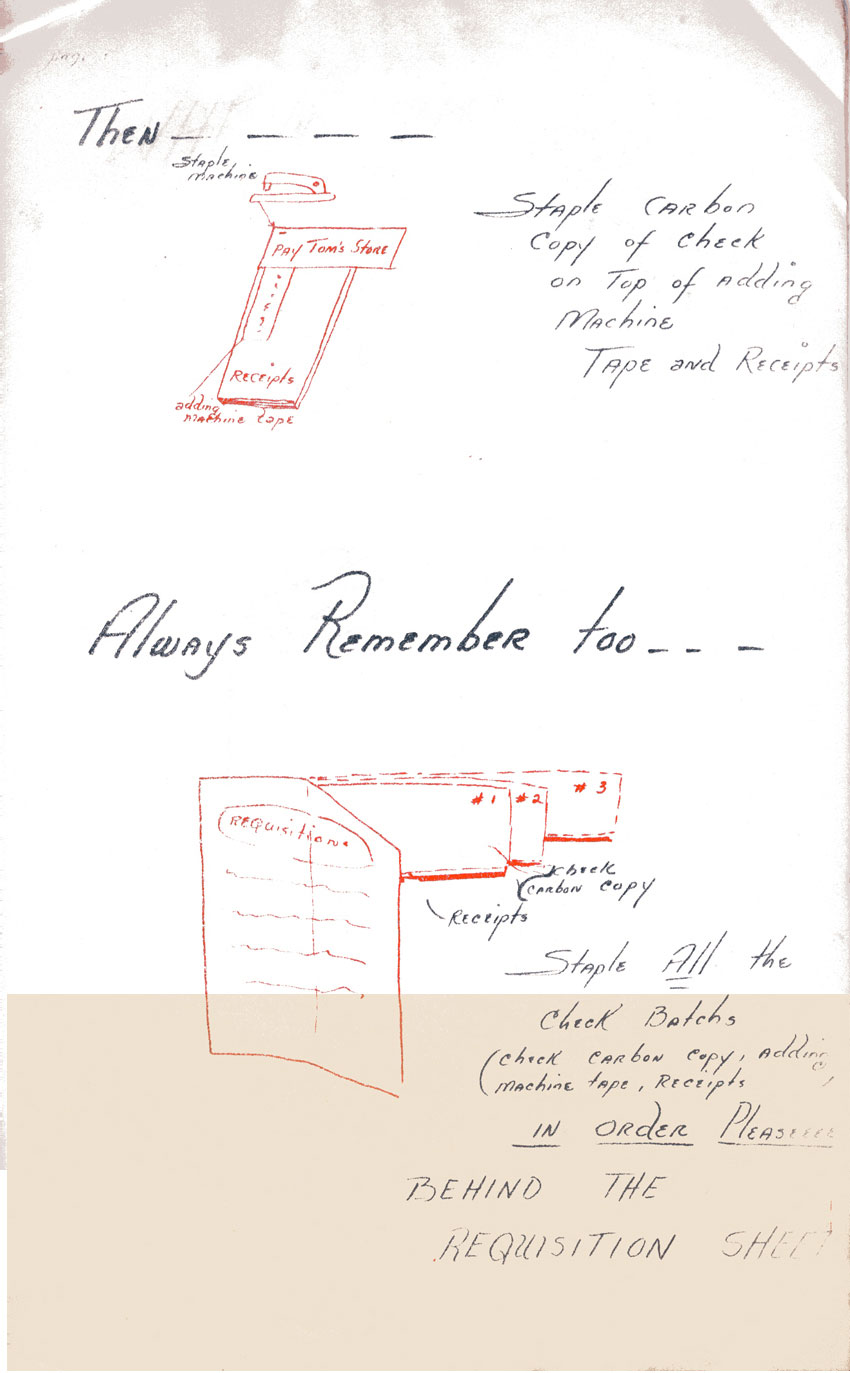 Then _ _ _ _
Staple
Machine
Pay Tom's Store
Receipts
adding
machine tape
Staple carbon
Copy of check
on Top of adding
Machine
Tape and Receipts
Always Remember too _ _ _
Requisition
#1 #2 #3
check
carbon copy
Receipts
Staple All the
Check Batchs
(check carbon copy, adding
machine tape, Receipts
in order Pleaseeee
BEHIND THE
REQUISITION SHEET